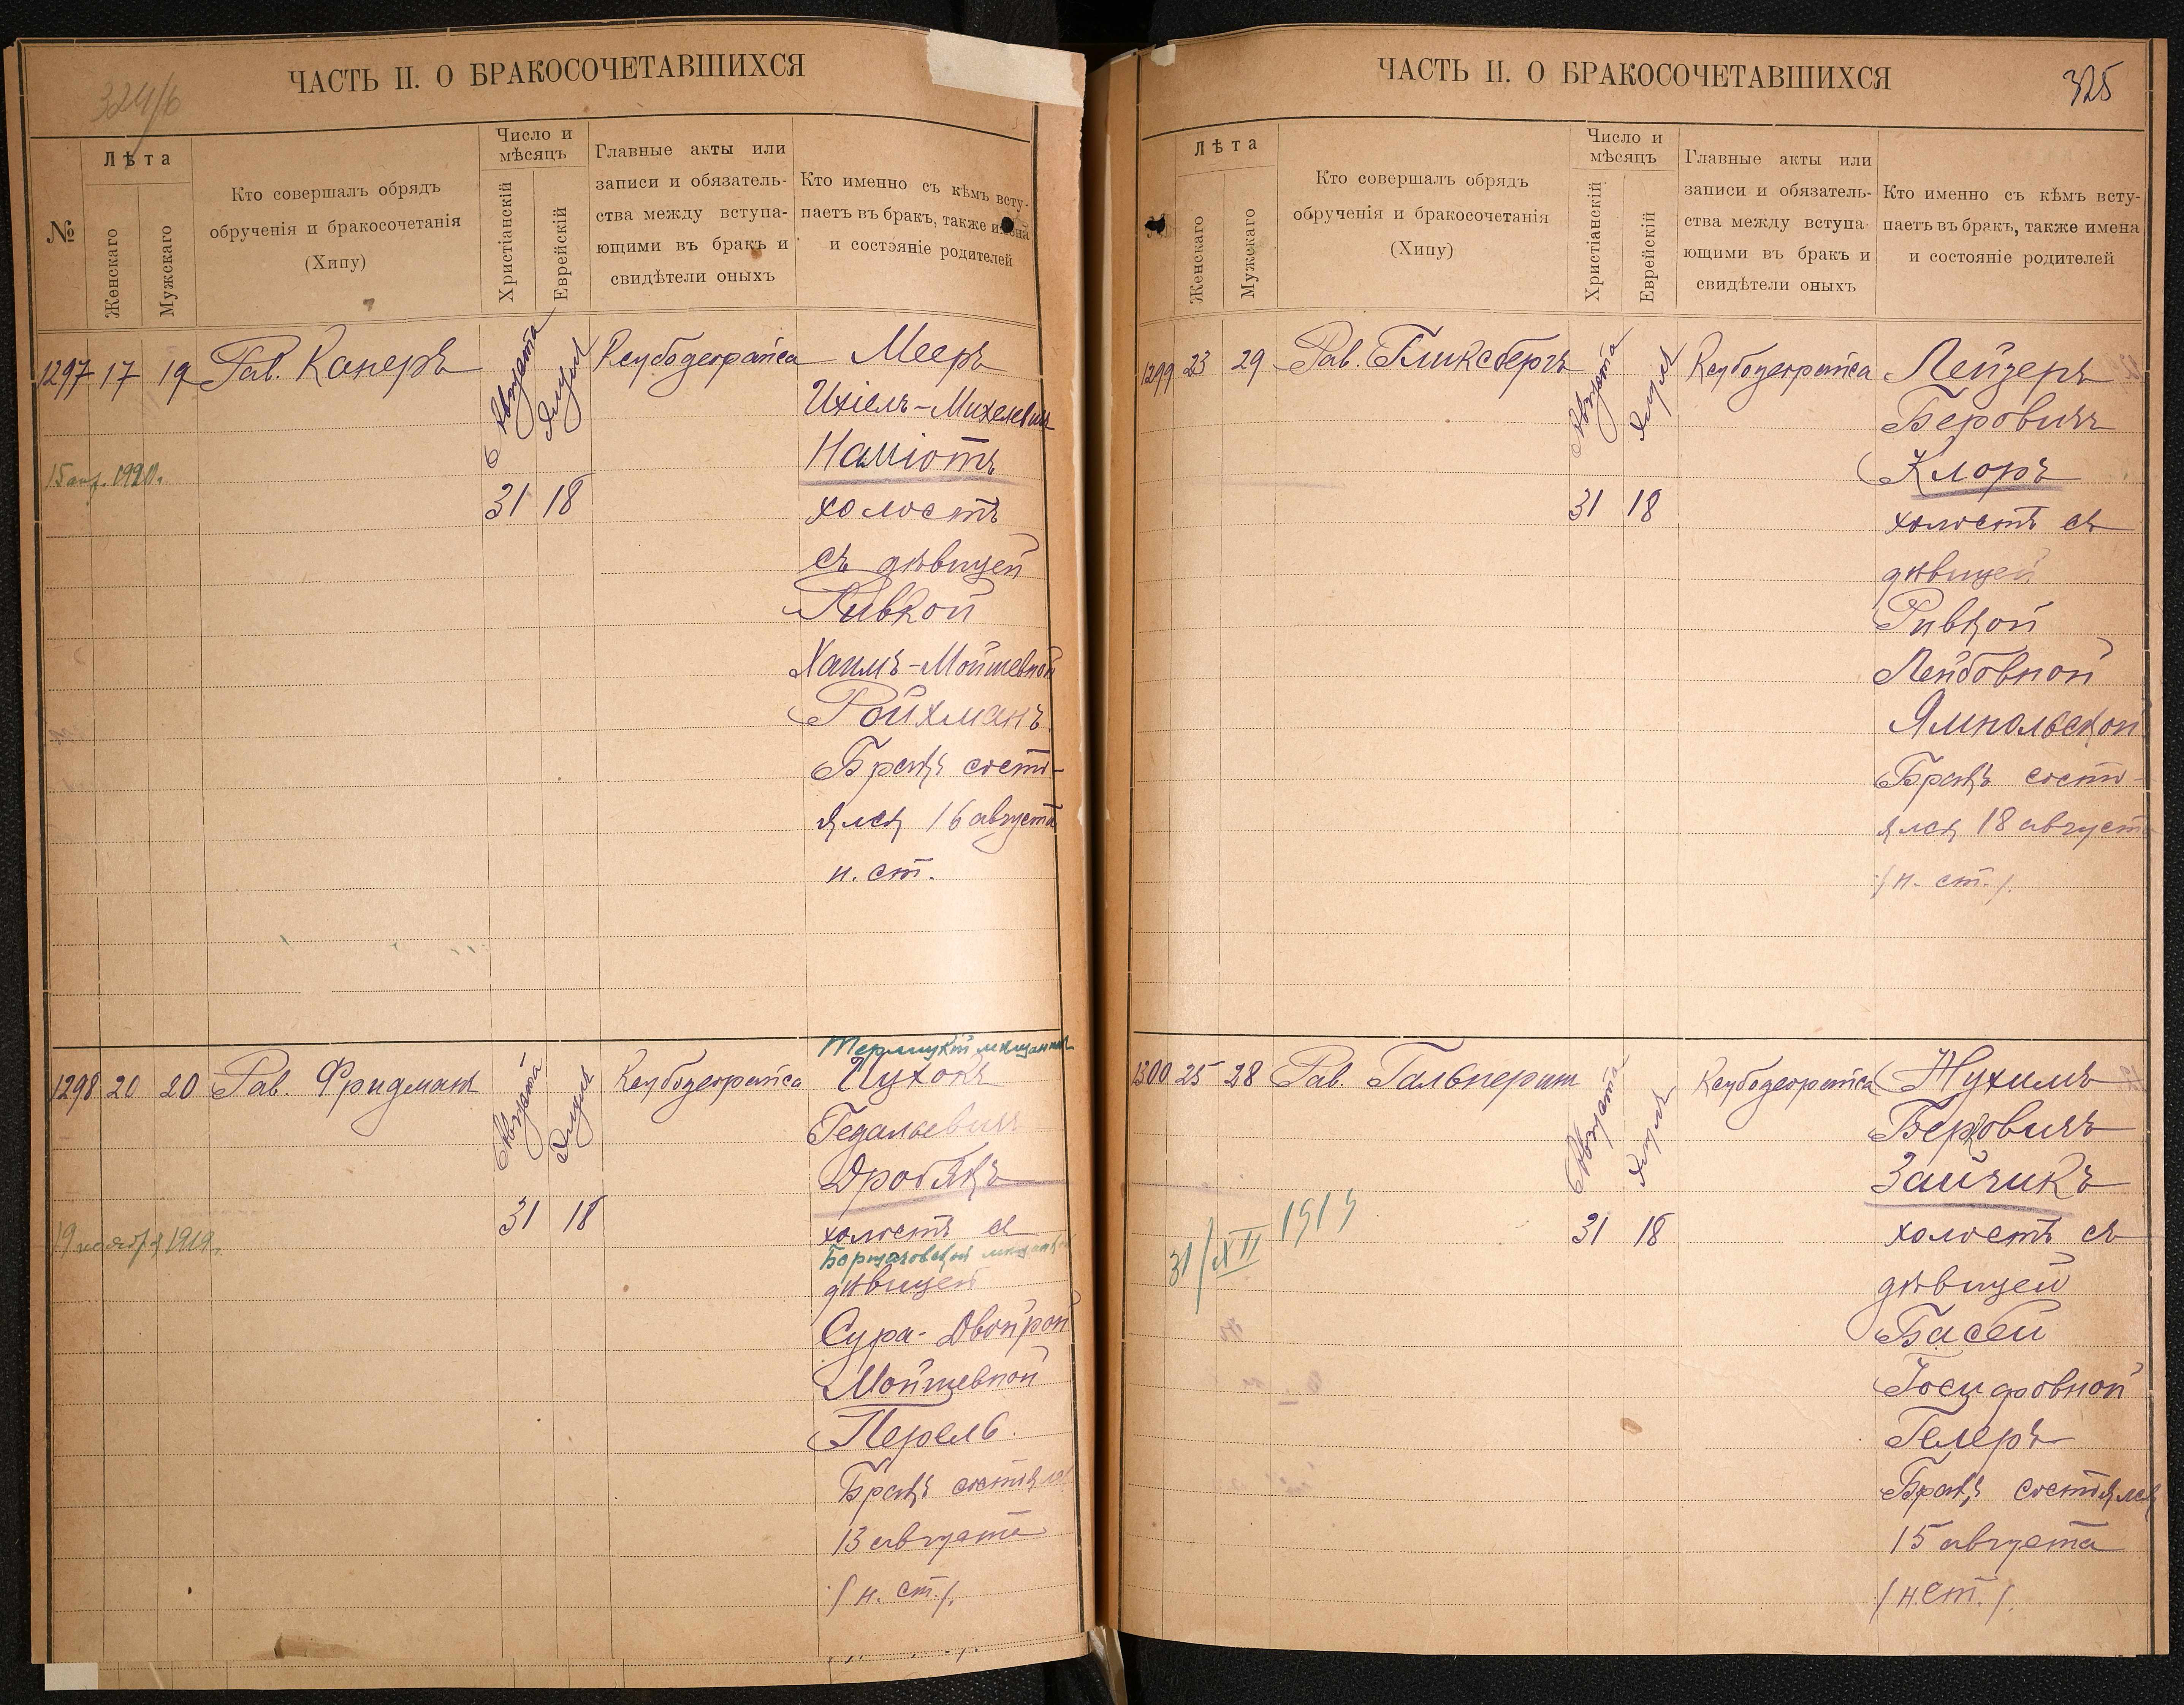 324/б
ЧАСТЬ II. О БРАКОСОЧЕТАВШИХСЯ
№
Лѣта
Женскаго
Мужскаго
Кто совершалъ обрядъ
обрученія и бракосочетанія
(Хипу)
Число и
мѣсяцъ
Христіанскій
Еврейскій
Главные акты или
записи и обязатель-
ства между вступа-
ющими въ бракъ и
свидѣтели оныхъ
Кто именно съ кѣмъ всту-
паетъ въ бракъ, также имена
и состояніе родителей
1297 17 19 Рав. Канеръ
Августа
Элуля
31 18
Мееръ
Ихіель-Михелевичъ
Наміотъ
холостъ
съ дѣвицей
Ривкой
Хаимъ-Мойшевной
Ройхманъ
Бракъ состо-
ялся 16 августа
н. ст.
1298 20 20 Рав. Фридманъ
Августа
Элуля
31 18
19 ноября 1919.
Гедальевичъ
Дробякъ
холостъ съ
дѣвицей
Сура-Двойрой
Мойшевной
Перель.
Бракъ состоялся
13 августа
/н. ст./.
ЧАСТЬ II. О БРАКОСОЧЕТАВШИХСЯ
325
Лѣта
Женскаго
Мужскаго
Кто совершалъ обрядъ
обрученія и бракосочетанія
(Хипу)
Число и
мѣсяцъ
Христіанскій
Еврейскій
Главные акты или
записи и обязатель-
ства между вступа-
ющими въ бракъ и
свидѣтели оныхъ
Кто именно съ кѣмъ всту-
паетъ въ бракъ, также имена
и состояніе родителей
1299 23 29 Рав. Гликсбергъ
Августа
Элуля
31 18
Лейзеръ
Беровичъ
Клоръ
холостъ съ
дѣвицей
Ривкой
Лейбовной
Ямпольской
Бракъ состо-
ялся 18 августа
/н. ст./.
1300 25 28 Рав. Гальперин
Августа
Элуля
31 18
31/XII 1919
Нухимъ
Берковичъ
Зайчикъ
холостъ съ
дѣвицей
Басей
Іосифовной
Гелеръ
Бракъ состоялся
15 августа
/н.ст./.